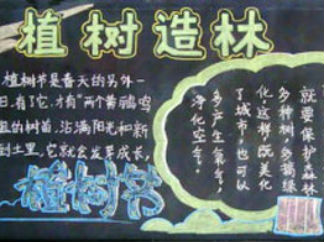 植树造林
植树节是春天的另外一
日,有了它,才有"两个黄鹂鸣
的树苗,沾满阳光和新
到土里,它就会发芽成长,
植树节
就要保护森林
多种树,多栽绿
化,这样既美化
了城市,也可以
多产生氧气,
净化空气。